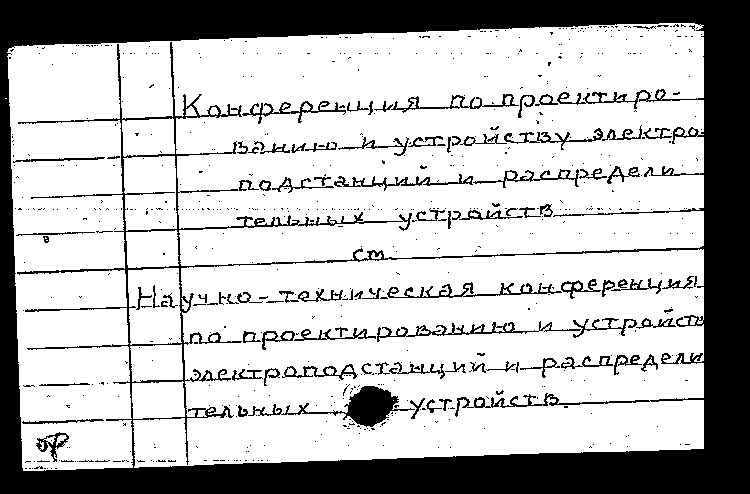 Конференция по проектиро-
ванию и устройству электро-
подстанций и распредели
тельных устройств
см.
Научно-техническая конференция
по проектированию и устройств
электроподстанций и распредели
тельных устройств.